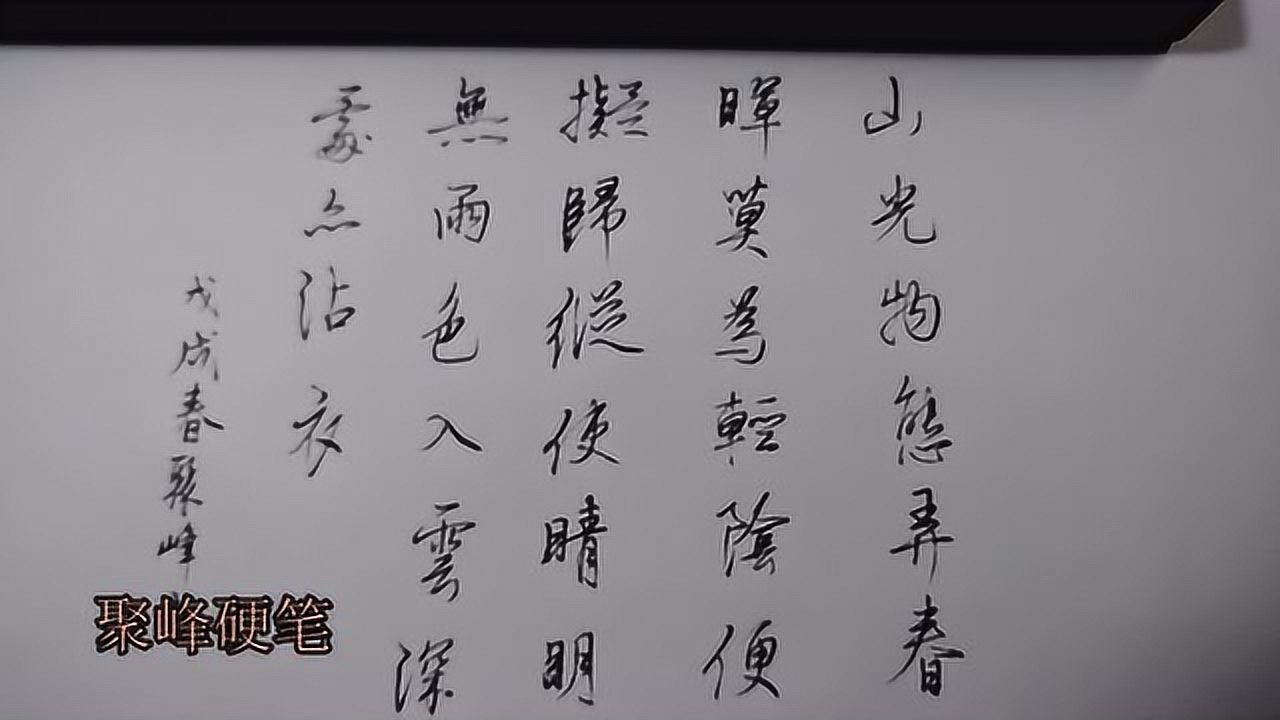 山光物態弄春
暉莫為輕陰便
擬歸縱使晴明
無雨色入雲深
處亦沾衣
戊戌春聚峰
聚峰硬笔